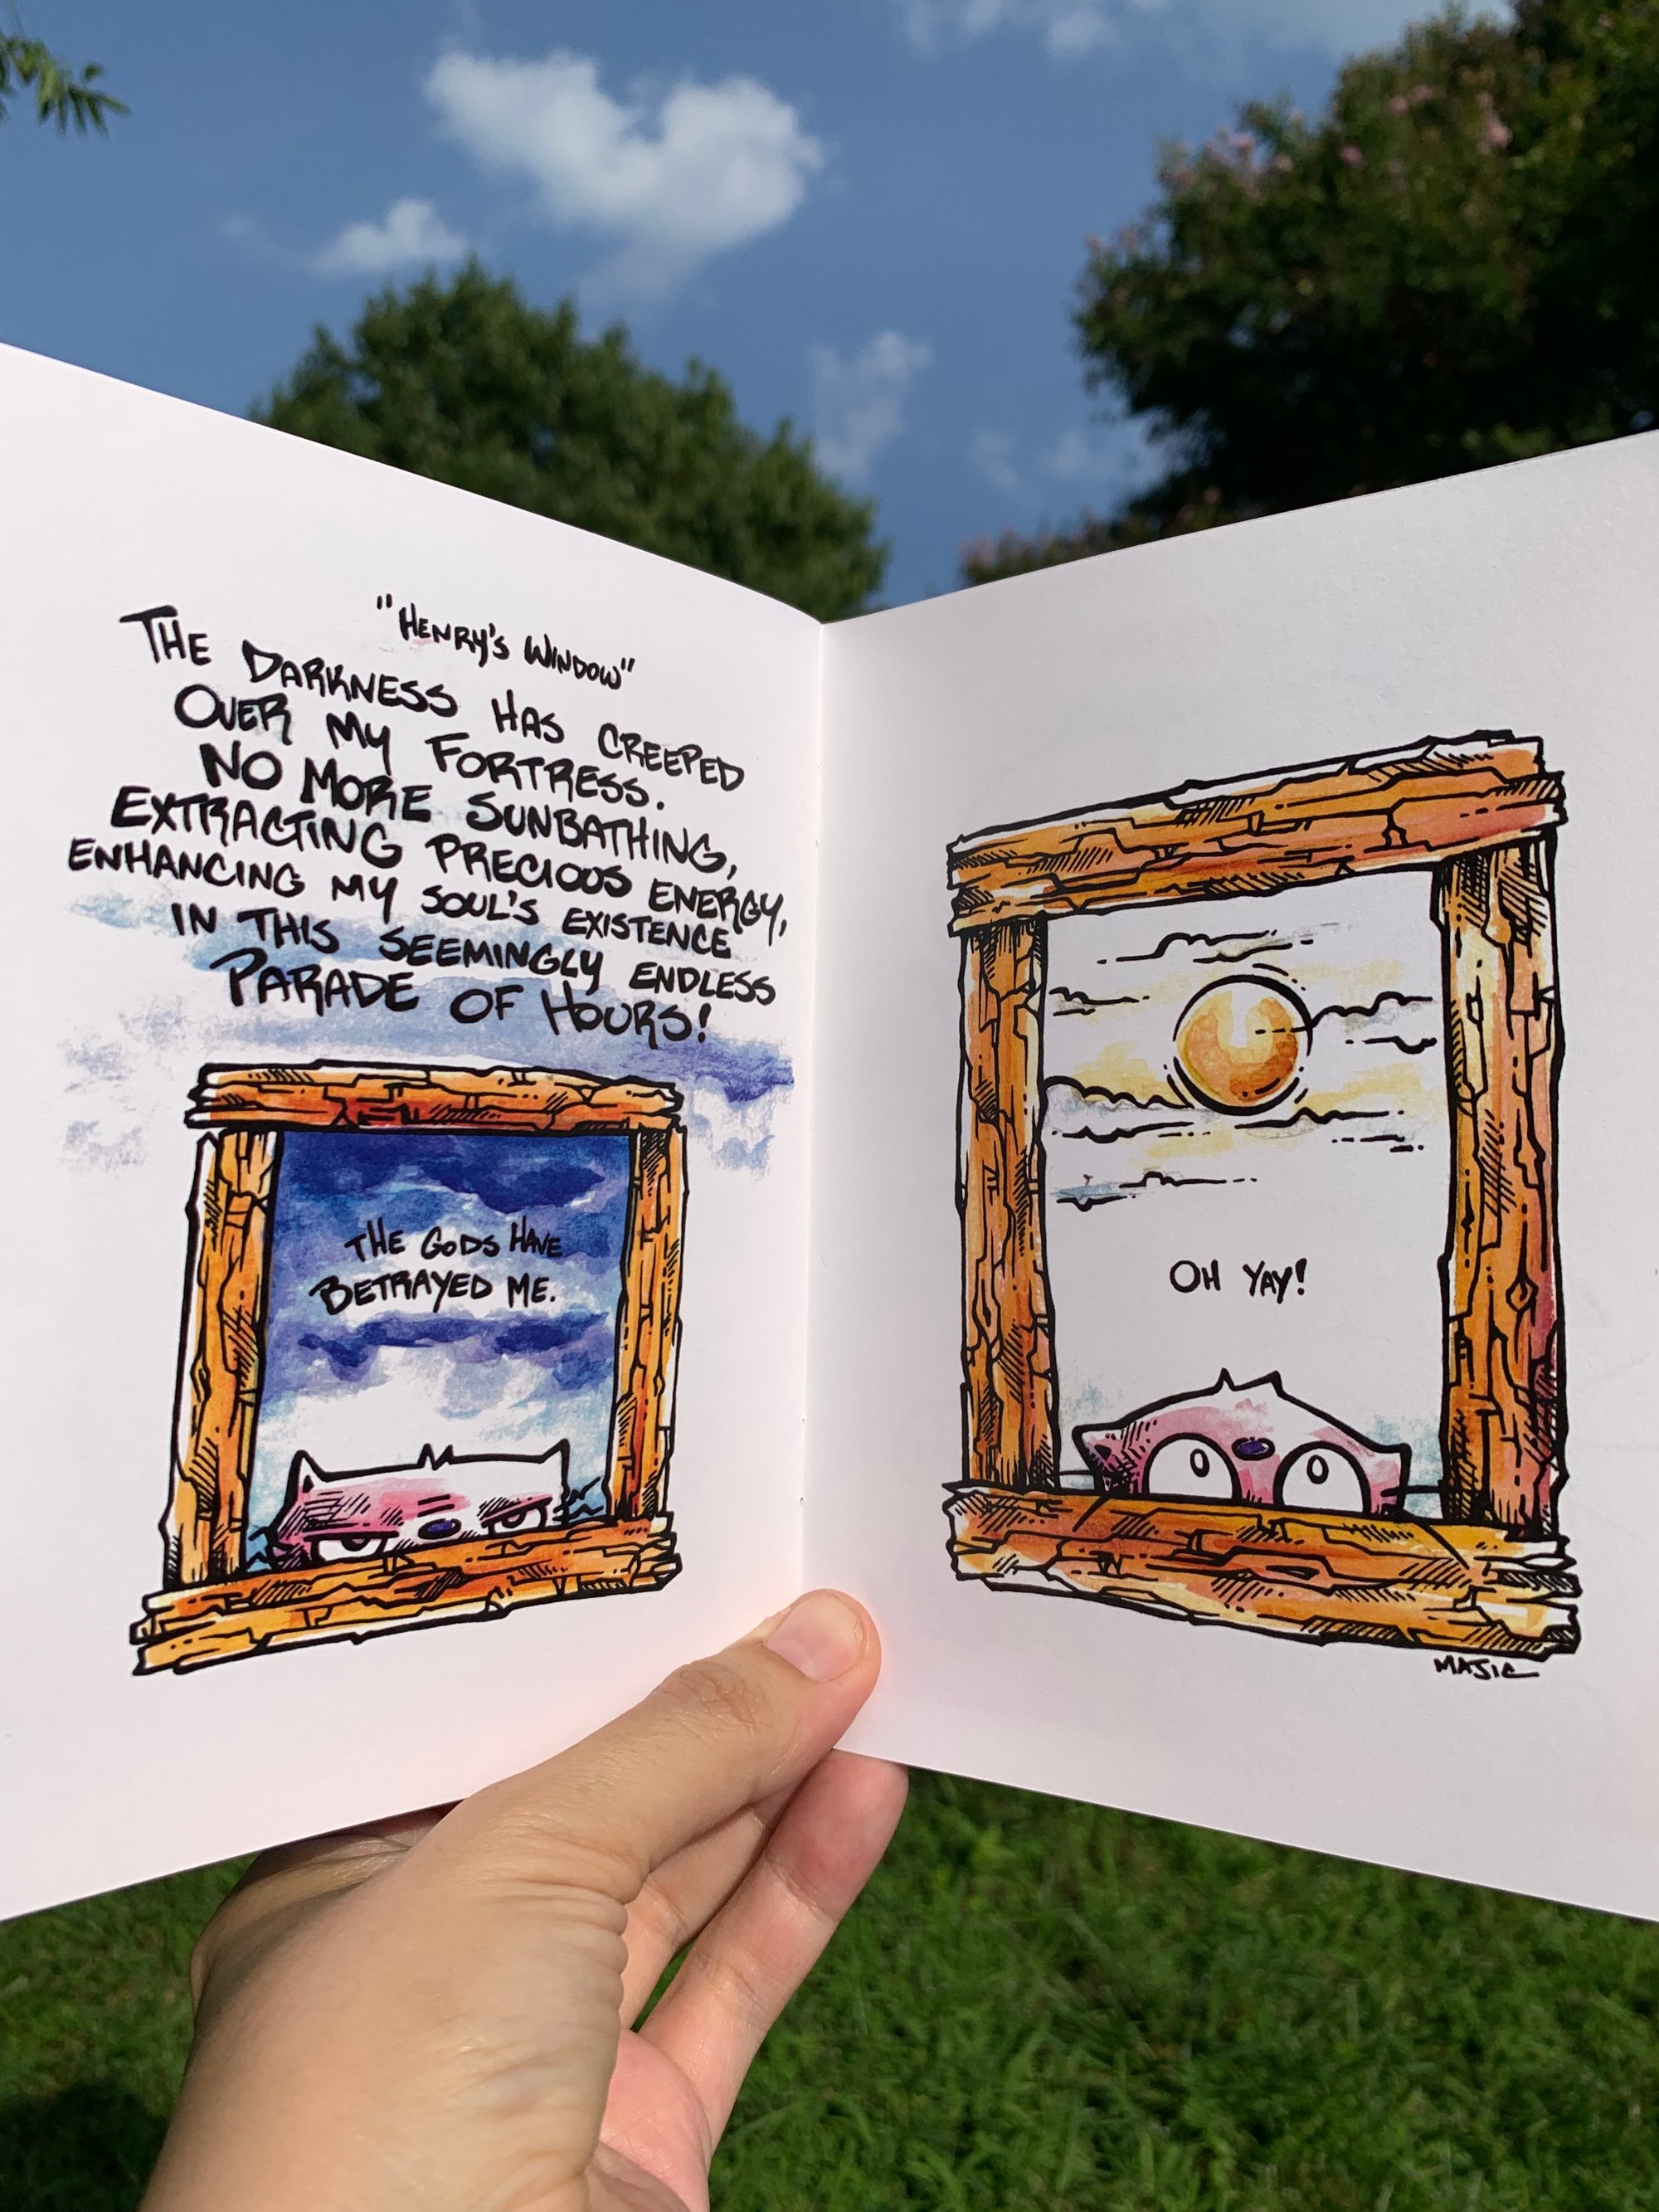 "Henry's Window"
The Darkness has creeped
over my fortress.
No more sunbathing,
extracting precious energy,
enhancing my soul's existence
in this seemingly endless
parade of hours!
The Gods have
betrayed me.
Oh yay!
Majic